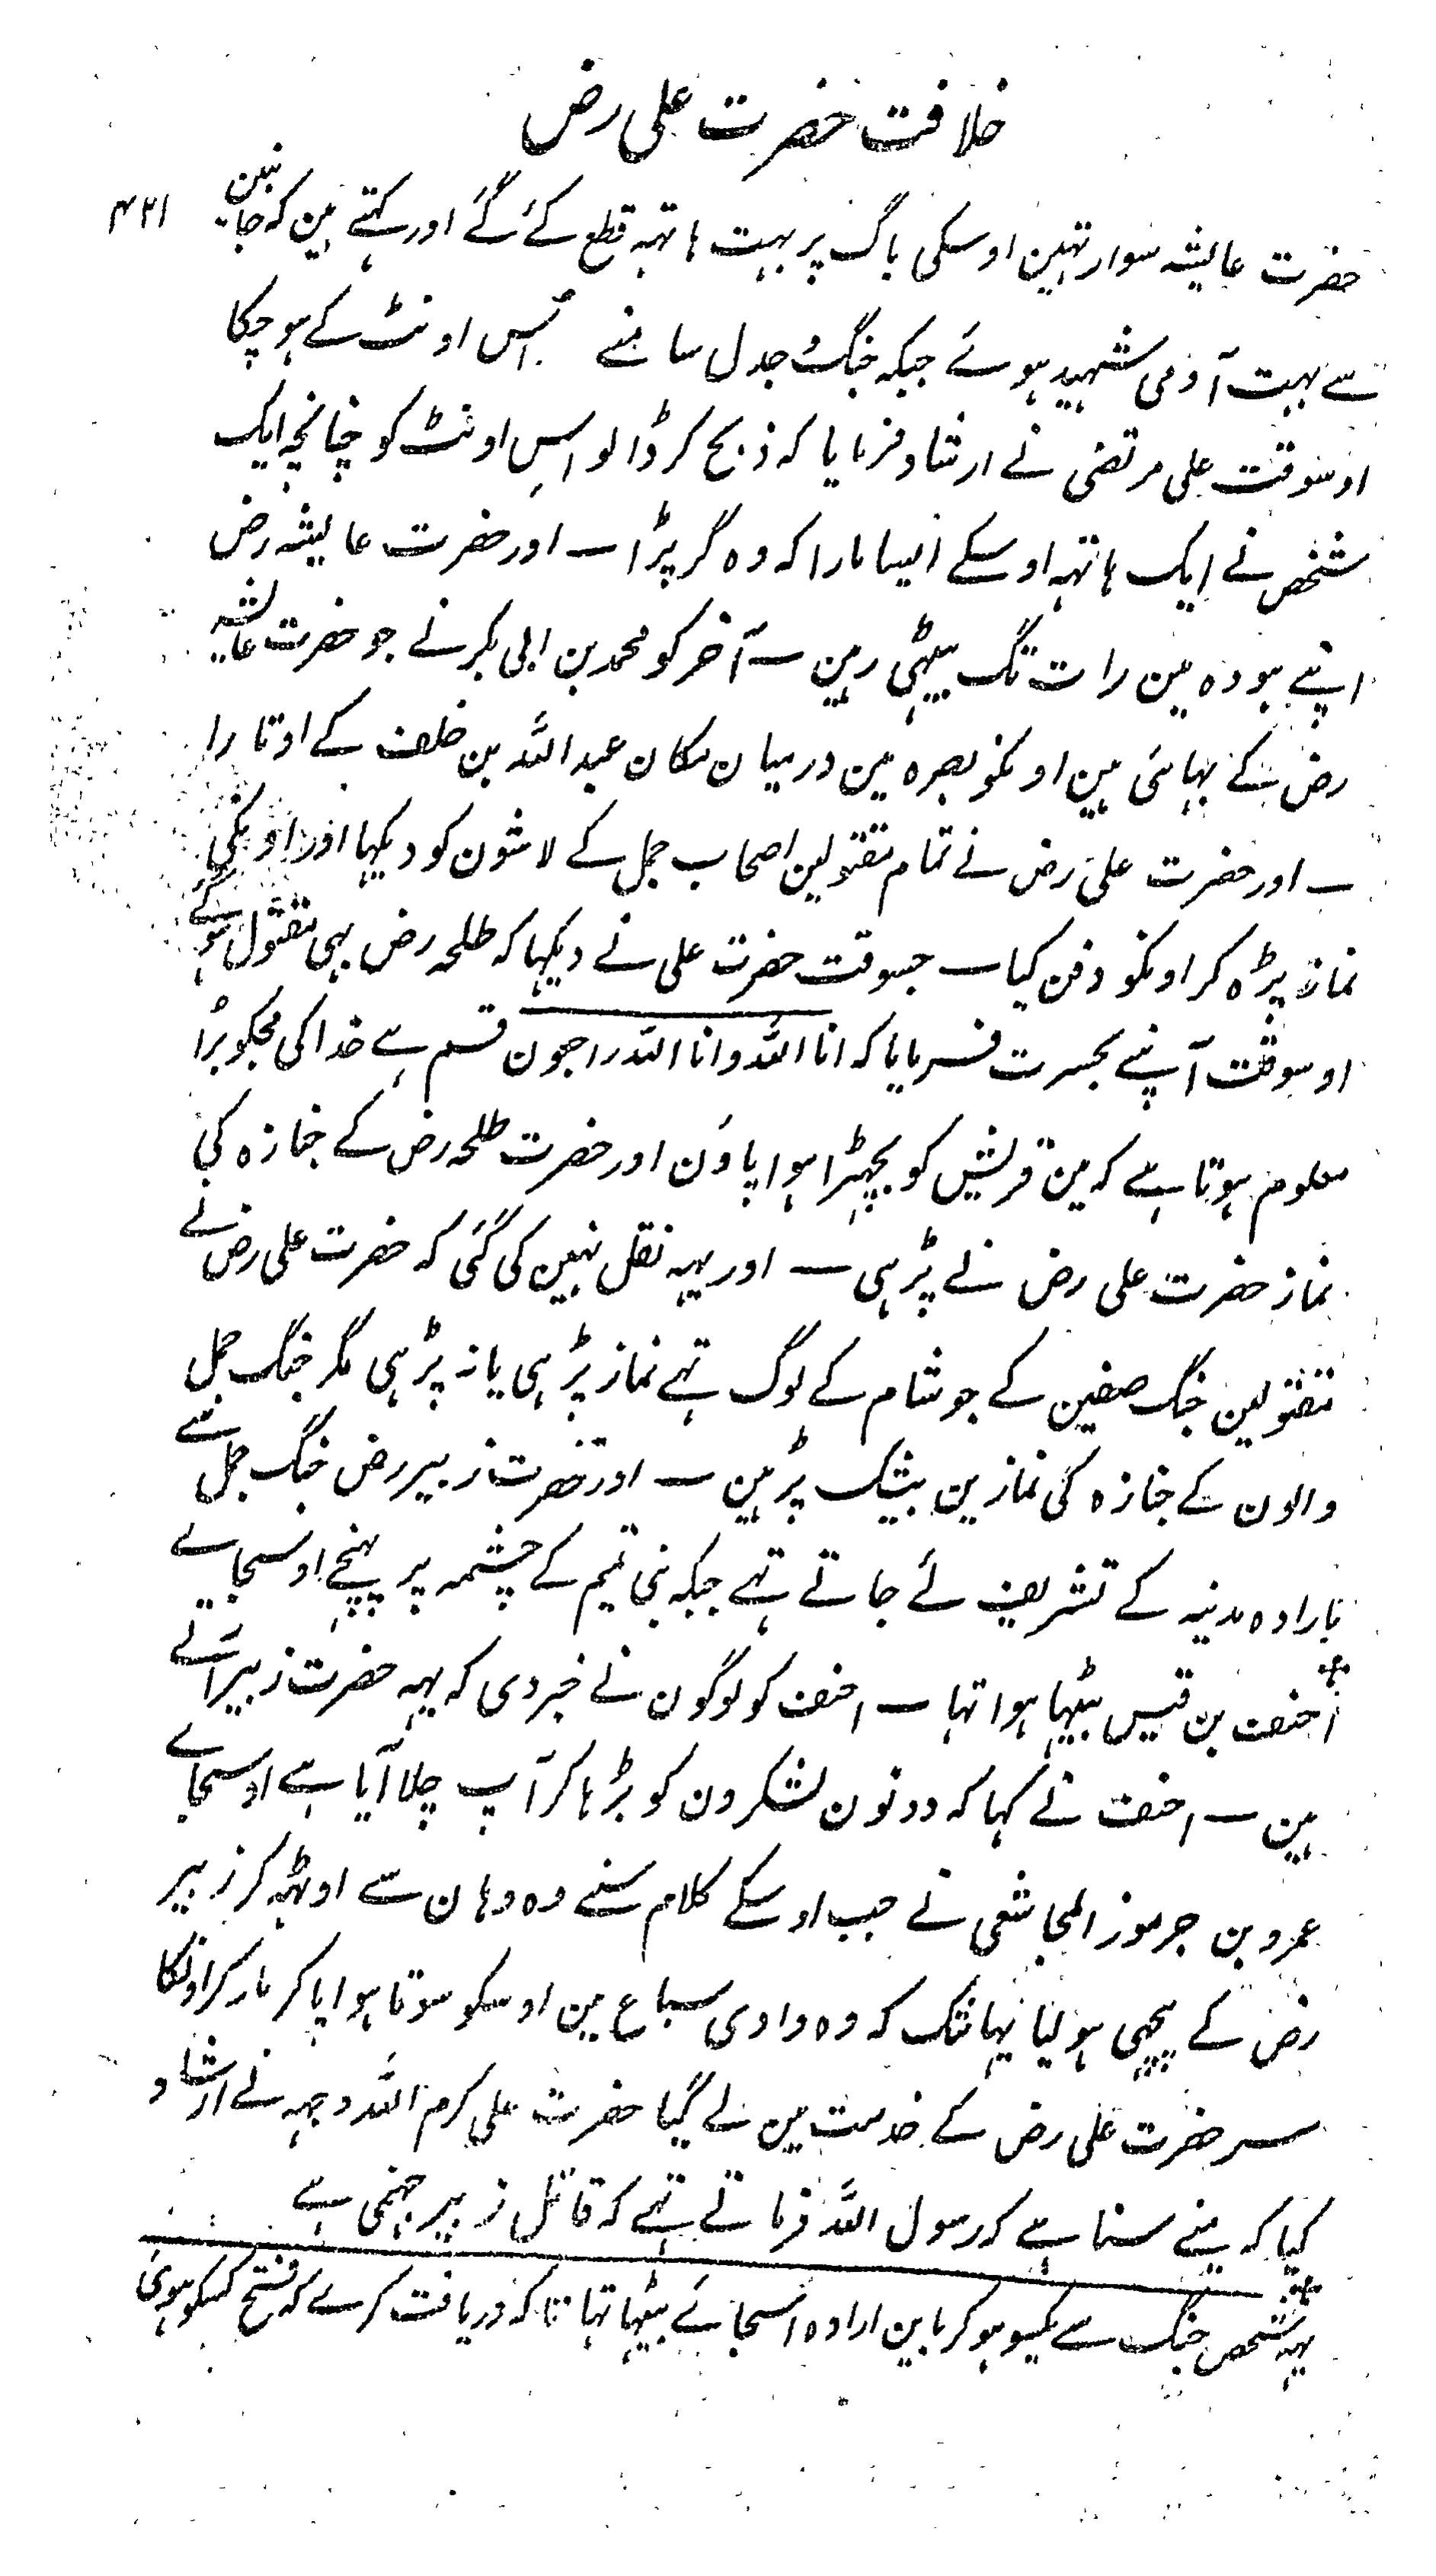 خلافت حضرت علی رض
۴۲۱
حضرت عایشہ سوار تہین اوسکی باگ پر بہت ہاتہہ قطع کئے گئے اور کہتے ہین کہ جانبین
سے بہت آدمی شہید ہوئے جبکہ جنگ جدل سامنے اس اونٹ کے ہوچکا
اوسوقت علی مرتضی نے ارشاد فرمایا کہ ذبح کر ڈالو اس اونٹ کو چنانچہ ایک
شخص نے ایک ہاتہہ اوسکے ایسا مارا کہ وہ گر پڑا ــ اور حضرت عایشہ رض
اپنے ہودہ مین رات تک بیٹھی رہین ــ آخر کو محمد بن ابی بکر نے جو حضرت عائشہ
رض کے بہائی ہین اونکو بصرہ مین درمیان مکان عبد اللہ بن خلف کے اوتارا
ــ اور حضرت علی رض نے تمام مقتولین اصحاب جمل کے لاشون کو دیکہا اور اونکی
نماز پڑہ کر اونکو دفن کیا ــ جسوقت حضرت علی نے دیکہا کہ طلحہ رض بہی مقتول ہوگئے
اوسوقت آپنے بحسرت فرمایا کہ انا اللہ وانا اللہ راجعون قسم ہے خدا کی مجکو بڑا
معلوم ہوتا ہے کہ مین قریش کو بچہڑا ہوا پاؤن اور حضرت طلحہ رض کے جنازہ کی
نماز حضرت علی رض نے پڑہی ــ اور یہہ نقل نہین کی گئی کہ حضرت علی رض نے
مقتولین جنگ صفین کے جو شام کے لوگ تہے نماز پڑہی یا نہ پڑہی مگر جنگ جمل
والون کے جنازہ کی نمازین بیشک پڑہین ــ اور حضرت زبیر رض جنگ جمل سے
بارادہ مدینہ کے تشریف لئے جاتے تہے جبکہ بنی تمیم کے چشمہ پر پہنچے اوسجائے
احنف بن قیس بیٹہا ہوا تہا ــ احنف کو لوگون نے خبر دی کہ یہہ حضرت زبیر آتے
ہین ــ احنف نے کہا کہ دونون لشکرون کو بڑہا کر آپ چلا آیا ہے اوسجائے
عمرو بن جرموز المجاشعی نے جب اوسکے کلام سنے وہ وہان سے اوٹہہ کر زبیر
رض کے پیچہی ہولیا یہانتک کہ وہ وادی سباع مین اوسکو سوتا ہوا پاکر مار کر اونکا
سر حضرت علی رض کے خدمت مین لے گیا حضرت علی کرم اللہ وجہہ نے ارشاد
کیا کہ مینے سنا ہے کہ رسول اللہ فرماتے تہے کہ قاتل زبیر جہنمی ہے
یہہ شخص جنگ سے یکسو ہوکر باین ارادہ اسجائے بیٹہا تہا تاکہ دریافت کرے کہ فتح کسکو ہوئی